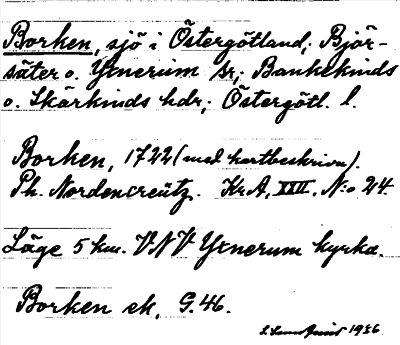 Borken, sjö i Östergötland, Björ-
säter o. Yxnerum sr; Bankekinds
o. Skärkinds hdr; Östergötl. l.
Borken, 1722 (med kartbeskrivn).
Ph. Nordencreütz. Kr.A. XXII. N:o 24.
Läge 5 km. VNV Yxnerum kyrka.
Borken ek. G. 46.
1936